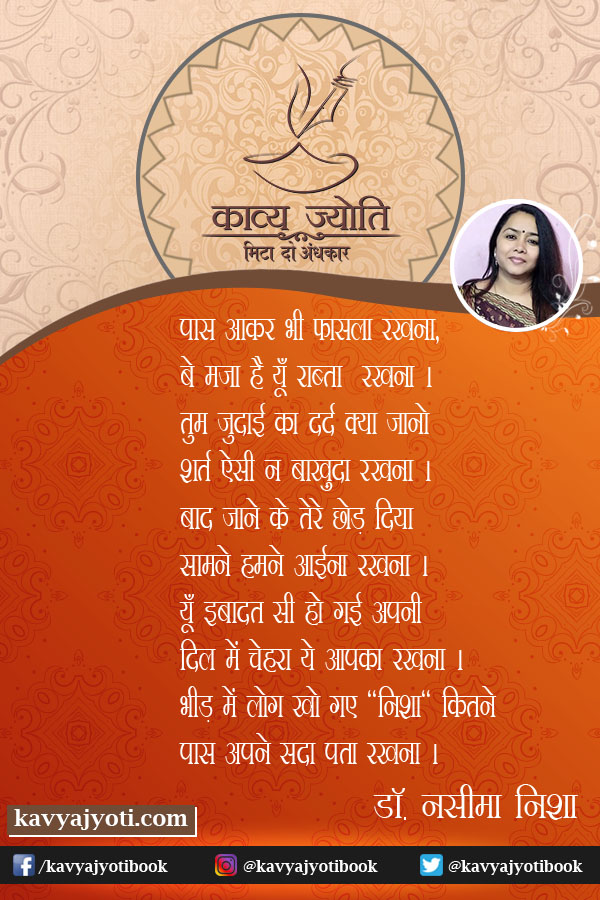 काव्य ज्योति
मिटा दो अंधकार
पास आकर भी फासला रखना,
बे मजा है यूँ राब्ता रखना ।
तुम जुदाई का दर्द क्या जानो
शर्त ऐसी न बाखुदा रखना ।
बाद जाने के तेरे छोड़ दिया
सामने हमने आईना रखना ।
यूँ इबादत सी हो गई अपनी
दिल में चेहरा ये आपका रखना ।
भीड़ में लोग खो गए “निशा“ कितने
पास अपने सदा पता रखना ।
डॉ. नसीमा निशा
kavyajyoti.com
/kavyajyotibook @kavyajyotibook @kavyajyotibook